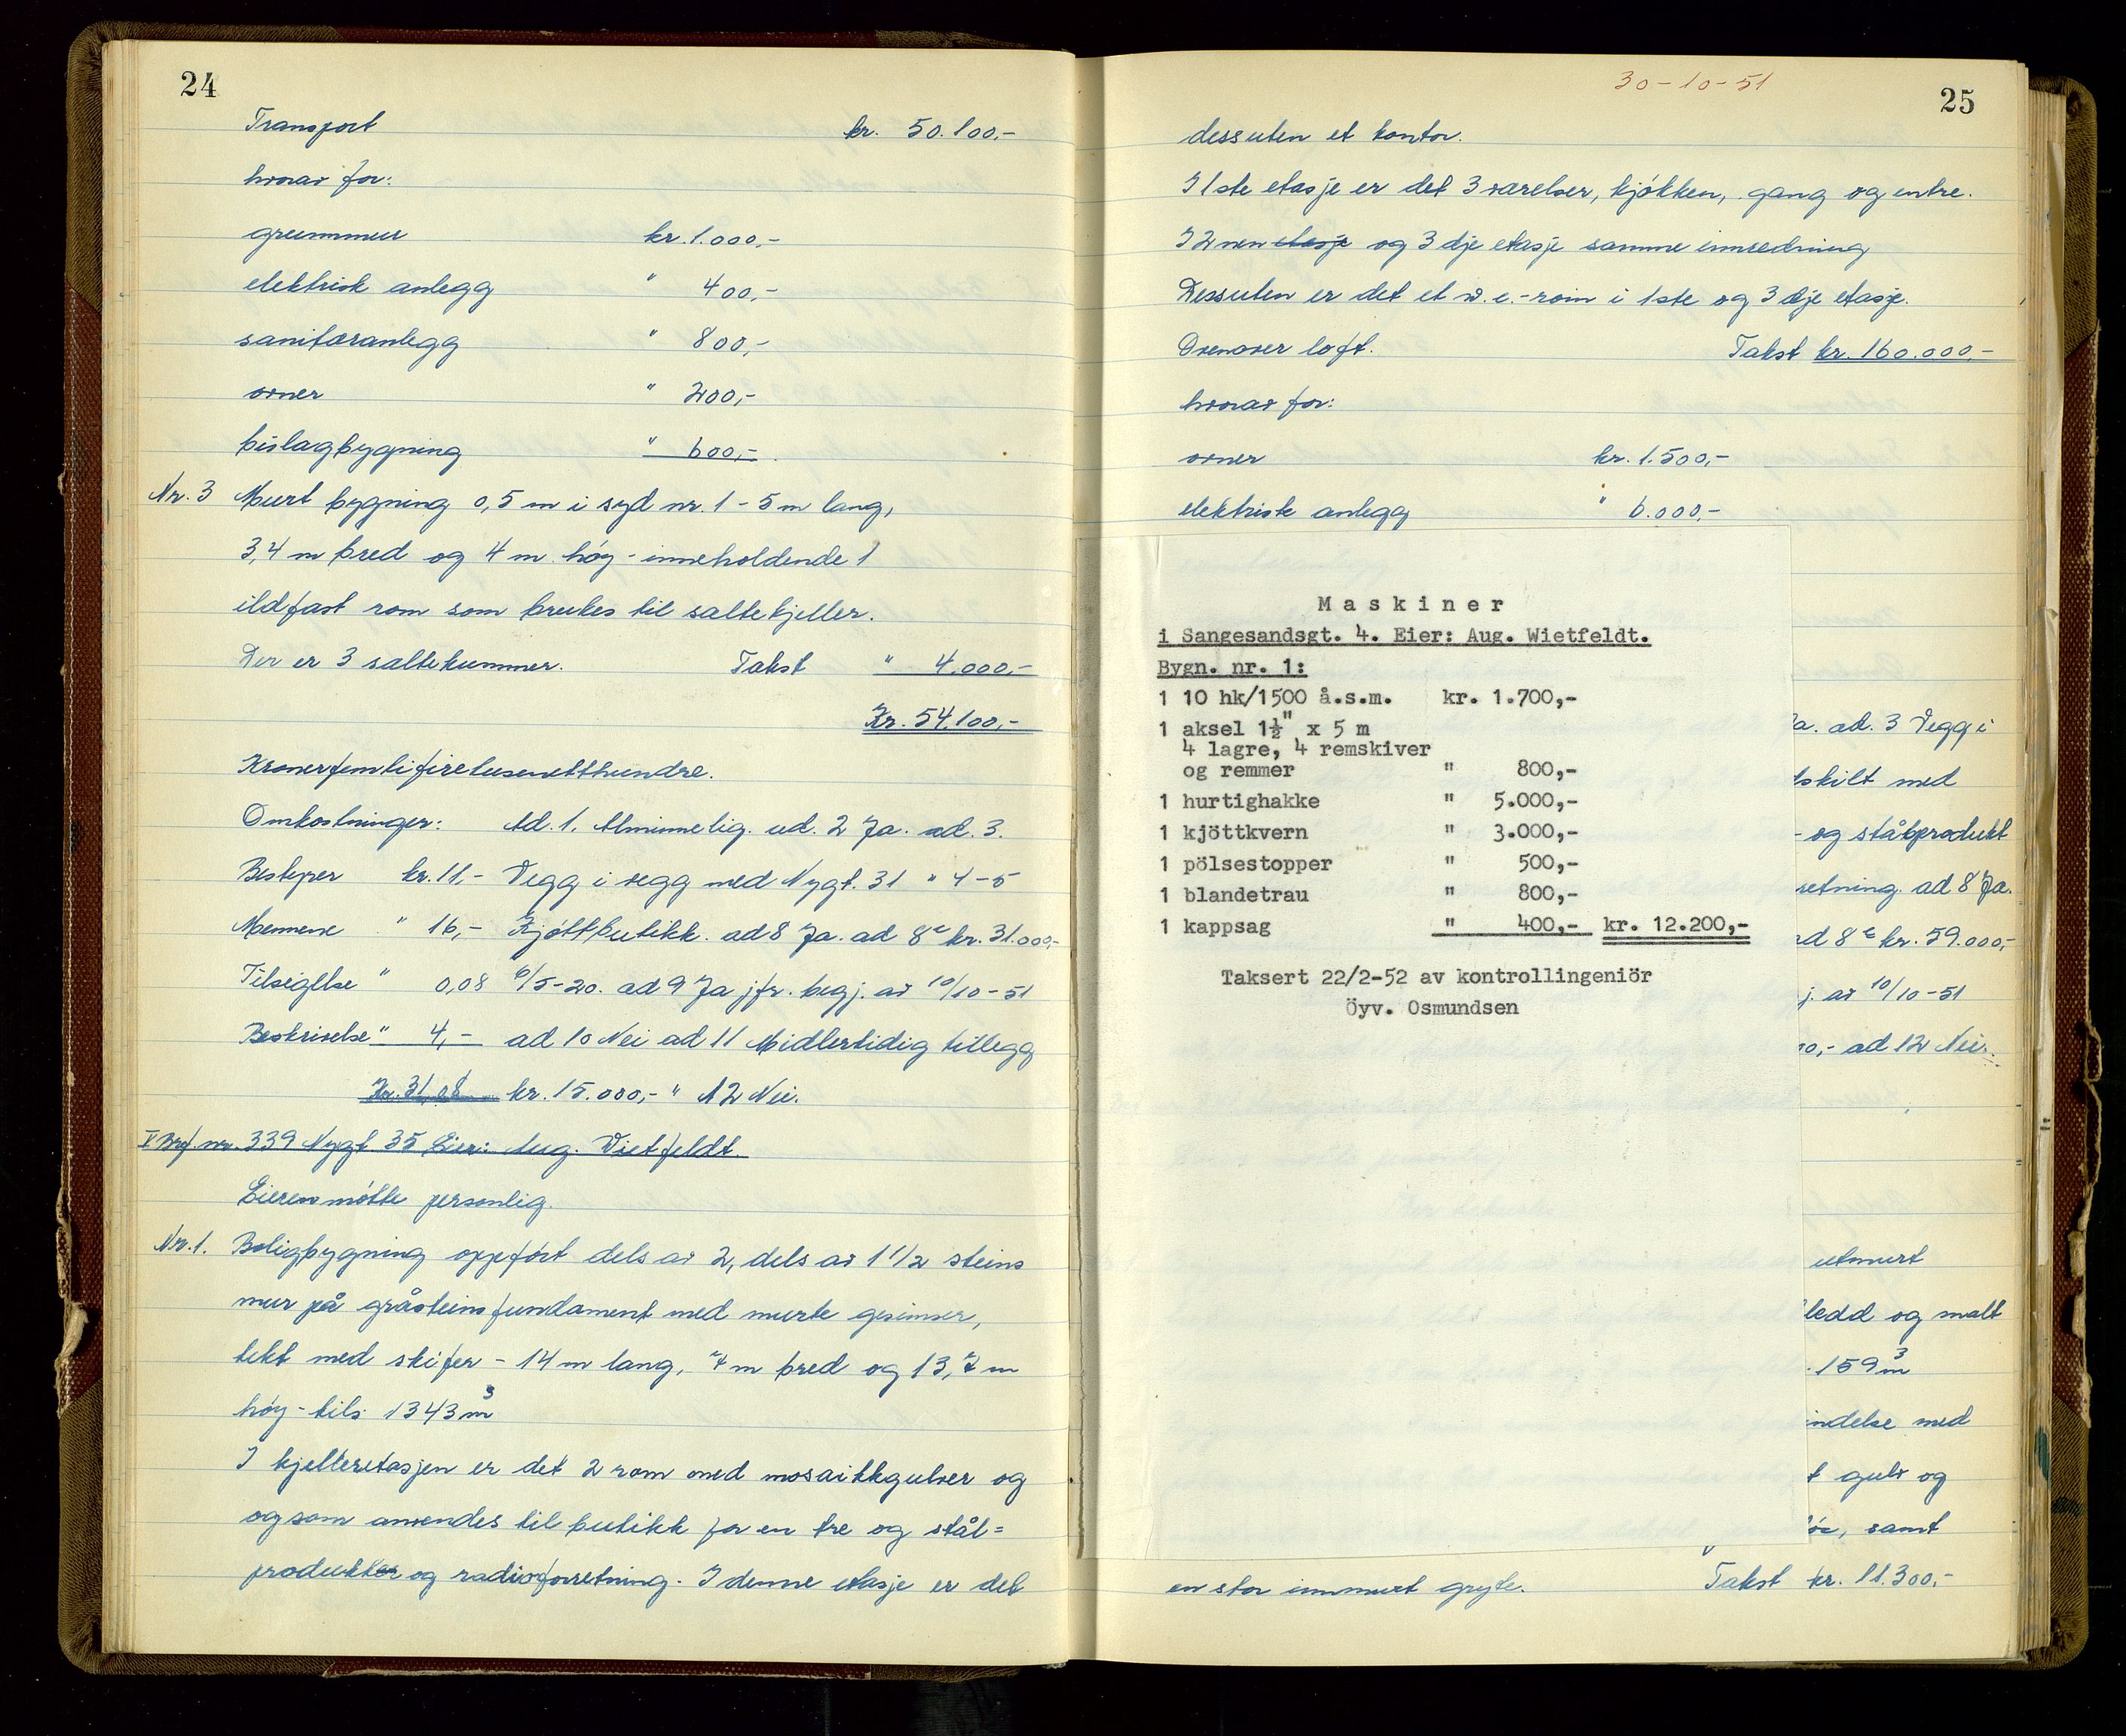 24
Transport kr. 50.100,-
hvorav for:
grunnmur kr. 1.000,-
elektrisk anlegg " 400,-
sanitæranlegg " 800,-
ovner " 200,-
bislagbygning " 600,-
Nr. 3 Murt bygning 0,5 m i syd nr. 1 - 5 m lang,
3,4 m bred og 4 m høy - inneholdende 1
ildfast rom som brukes til saltekjeller.
Der er 3 saltekummer. Takst " 4.000,-
Kr. 54.100,-
Kronerfemtifiretusenetthundre.
Omkostninger: Ad. 1. Alminnelig. ad. 2 Ja. ad. 3.
Bestyrer kr. 11,- Vegg i vegg med Nygt. 31 " 4-5
Mennene " 16,- Kjøttbutikk. ad 8 Ja. ad 8c kr. 31.000,-
Tilsigelse " 0,08 6/5-20. ad 9 Ja jfr. begj. av 10/10-51
Beskrivelse " 4,- ad 10 Nei ad 11 Midlertidig tillegg
Kr. 31,08 kr. 15.000,- " 12 Nei.
V Brf. nr. 339 Nygt 35 Eier: Aug. Wietfeldt.
Eieren møtte personlig.
Nr. 1. Boligbygning oppført dels av 2, dels av 1 1/2 steins
mur på gråsteinsfundament med murte gesimser,
tekt med skifer - 14 m lang, 7 m bred og 13,7 m
høy - tils. 1343 m3
I kjelleretasjen er det 2 rom med mosaikkgulver og
og som anvendes til butikk for en tre og stål=
produkter og radioforretning. I denne etasje er det
30-10-51
25
dessuten et kontor.
I 1ste etasje er det 3 værelser, kjøkken, gang og entre.
I 2nen etasje og 3dje etasje samme innredning
Dessuten er det et w.c.-rom i 1ste og 3dje etasje.
Ovenover loft. Takst kr. 160.000,-
hvorav for:
ovner kr. 1.500,-
elektrisk anlegg " 6.000,-
Maskiner
i Sangesandsgt. 4. Eier: Aug. Wietfeldt.
Bygn. nr. 1:
1 10 hk/1500 å.s.m. kr. 1.700,-
1 aksel 1½" x 5 m
4 lagre, 4 remskiver
og remmer " 800,-
1 hurtighakke " 5.000,-
1 kjöttkvern " 3.000,-
1 pölsestopper " 500,-
1 blandetrau " 800,-
1 kappsag " 400,- kr. 12.200,-
Taksert 22/2-52 av kontrollingeniör
Öyv. Osmundsen
a. ad. 3 Vegg i
skilt med
- og stålprodukt
retning. ad 8 Ja.
ad 8c kr. 59.000,-
j. av 10/10-51
0,- ad 12 Nei.
utmurt
ledd og malt
. 159 m3
indelse med
t gulv og
, samt
en stor innmurt gryte. Takst kr. 11.300,-